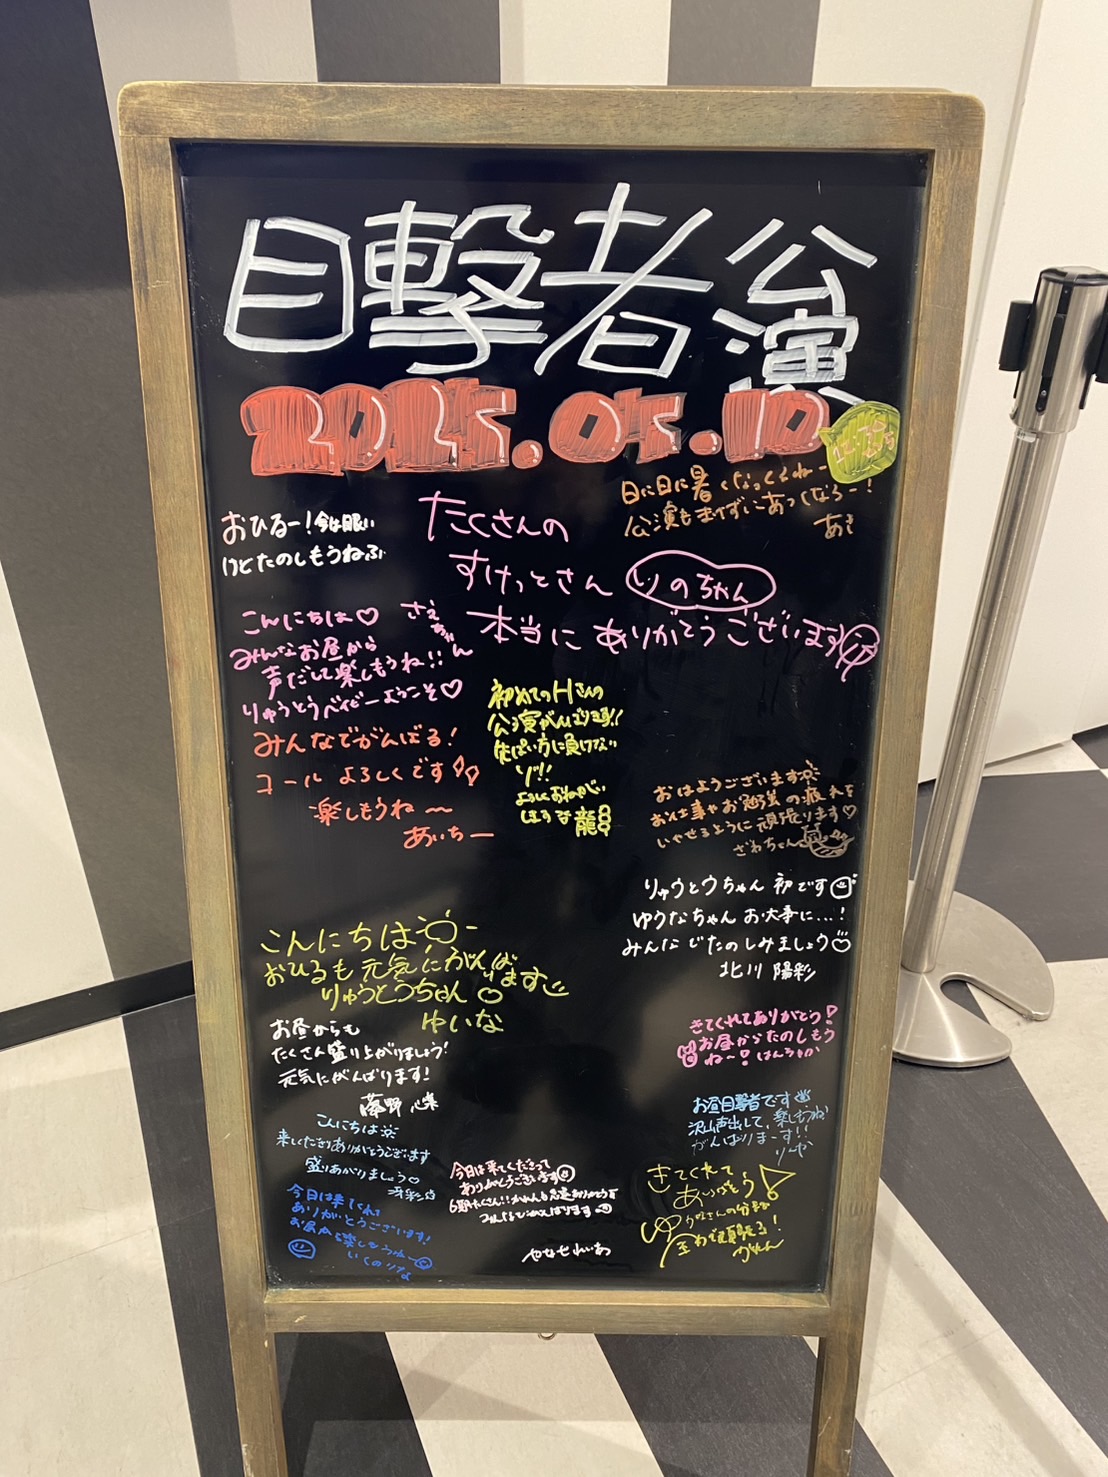 目撃者公演
2025.05.10
日に日に暑くなってくね〜
公演もまけずにあつくなろー!
あき
おひるー!今は眠い
けどたのしもうねふ
たくさんの
すけっとさん りのちゃん
本当に ありがとうございます
こんにちは♡
みんなお昼から
声だして楽しもうね!!
りゅうとうベイビーようこそ♡
さえちゃん
みんなでがんばる!
コール よろしくです
楽しもうね〜
あいちー
初めてのHさんの
公演がんばります!!
ゾ!!
龍
おはようございます
お仕事やお勉強の疲れを
いやせるように頑張ります♡
ざわちゃん
りゅうとうちゃん 初です
ゆうなちゃん お大事に...!
みんなでたのしみましょう
北川 陽彩
こんにちは
おひるも元気にがんばります
りゅうとうちゃん
ゆいな
お昼からも
たくさん盛り上がりましょう!
元気にがんばります!
藤野 心葉
きてくれてありがとう!
お昼からたのしもう
ね〜!
こんにちは
来てくださりありがとうございます
盛りあがりましょう♡
お昼目撃者です
沢山声出して、楽しもうね
がんばりまーす!!
りーや
今日は来てくださって
ありがとうございます
今日は来てくれて
ありがとうございます!
お昼から楽しもうねー
きてくれて
ありがとう!
全力で頑張る!
かれん